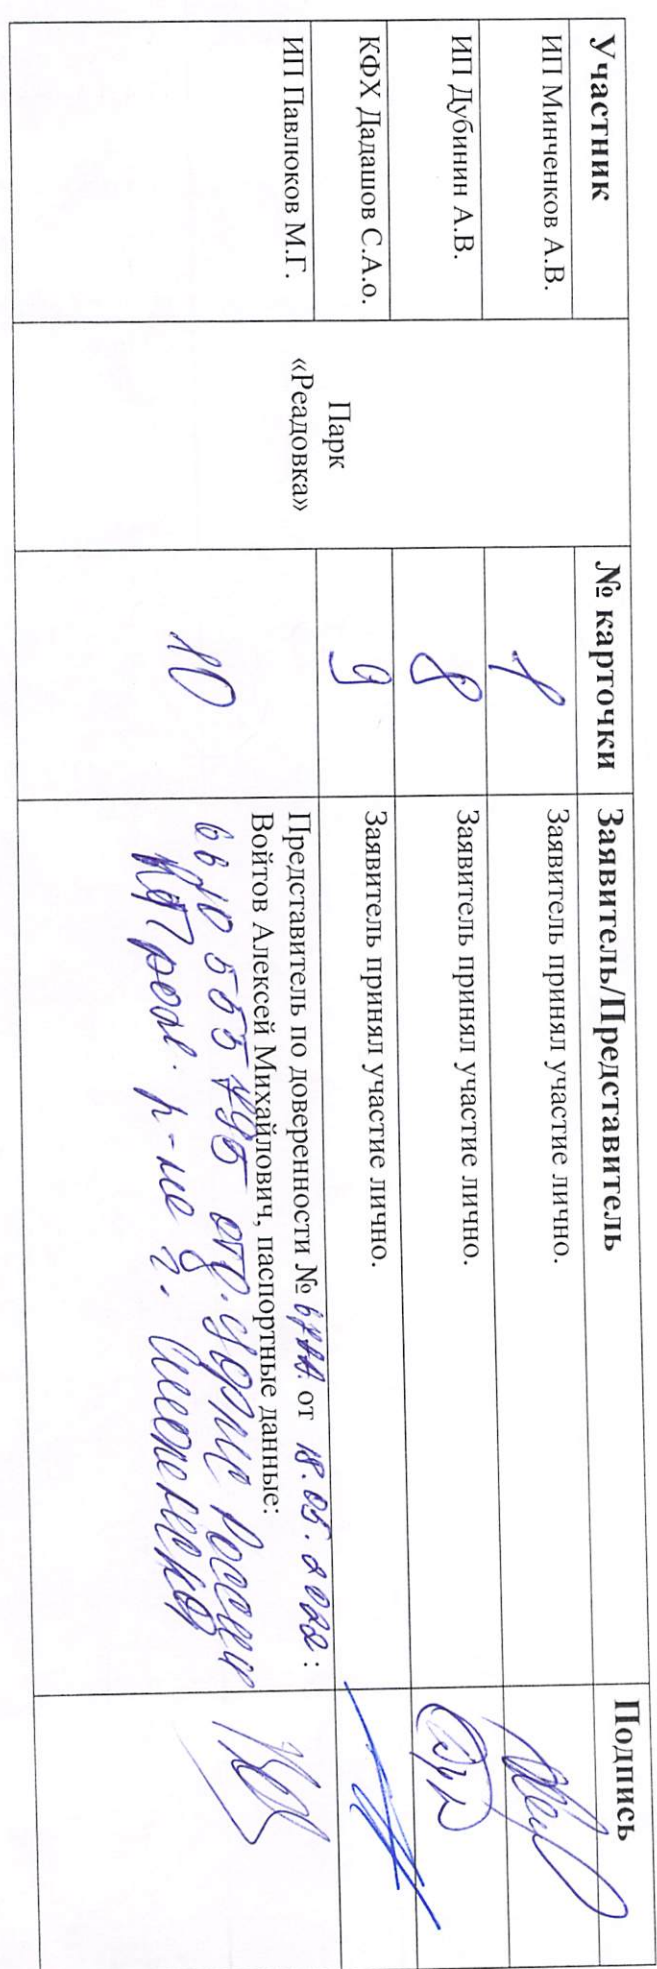 Участник
№ карточки
Заявитель/Представитель
Подпись
ИП Минченков А.В.
Парк
«Реадовка»
Заявитель принял участие лично.
ИП Дубинин А.В.
8
Заявитель принял участие лично.
КФХ Дадашов С.А.о.
9
Заявитель принял участие лично.
ИП Павлюков М.Г.
10
Представитель по доверенности № от 18.05.2022:
Войтов Алексей Михайлович, паспортные данные:
6610 555795 отд. УФМС России
р-не г. Смоленска